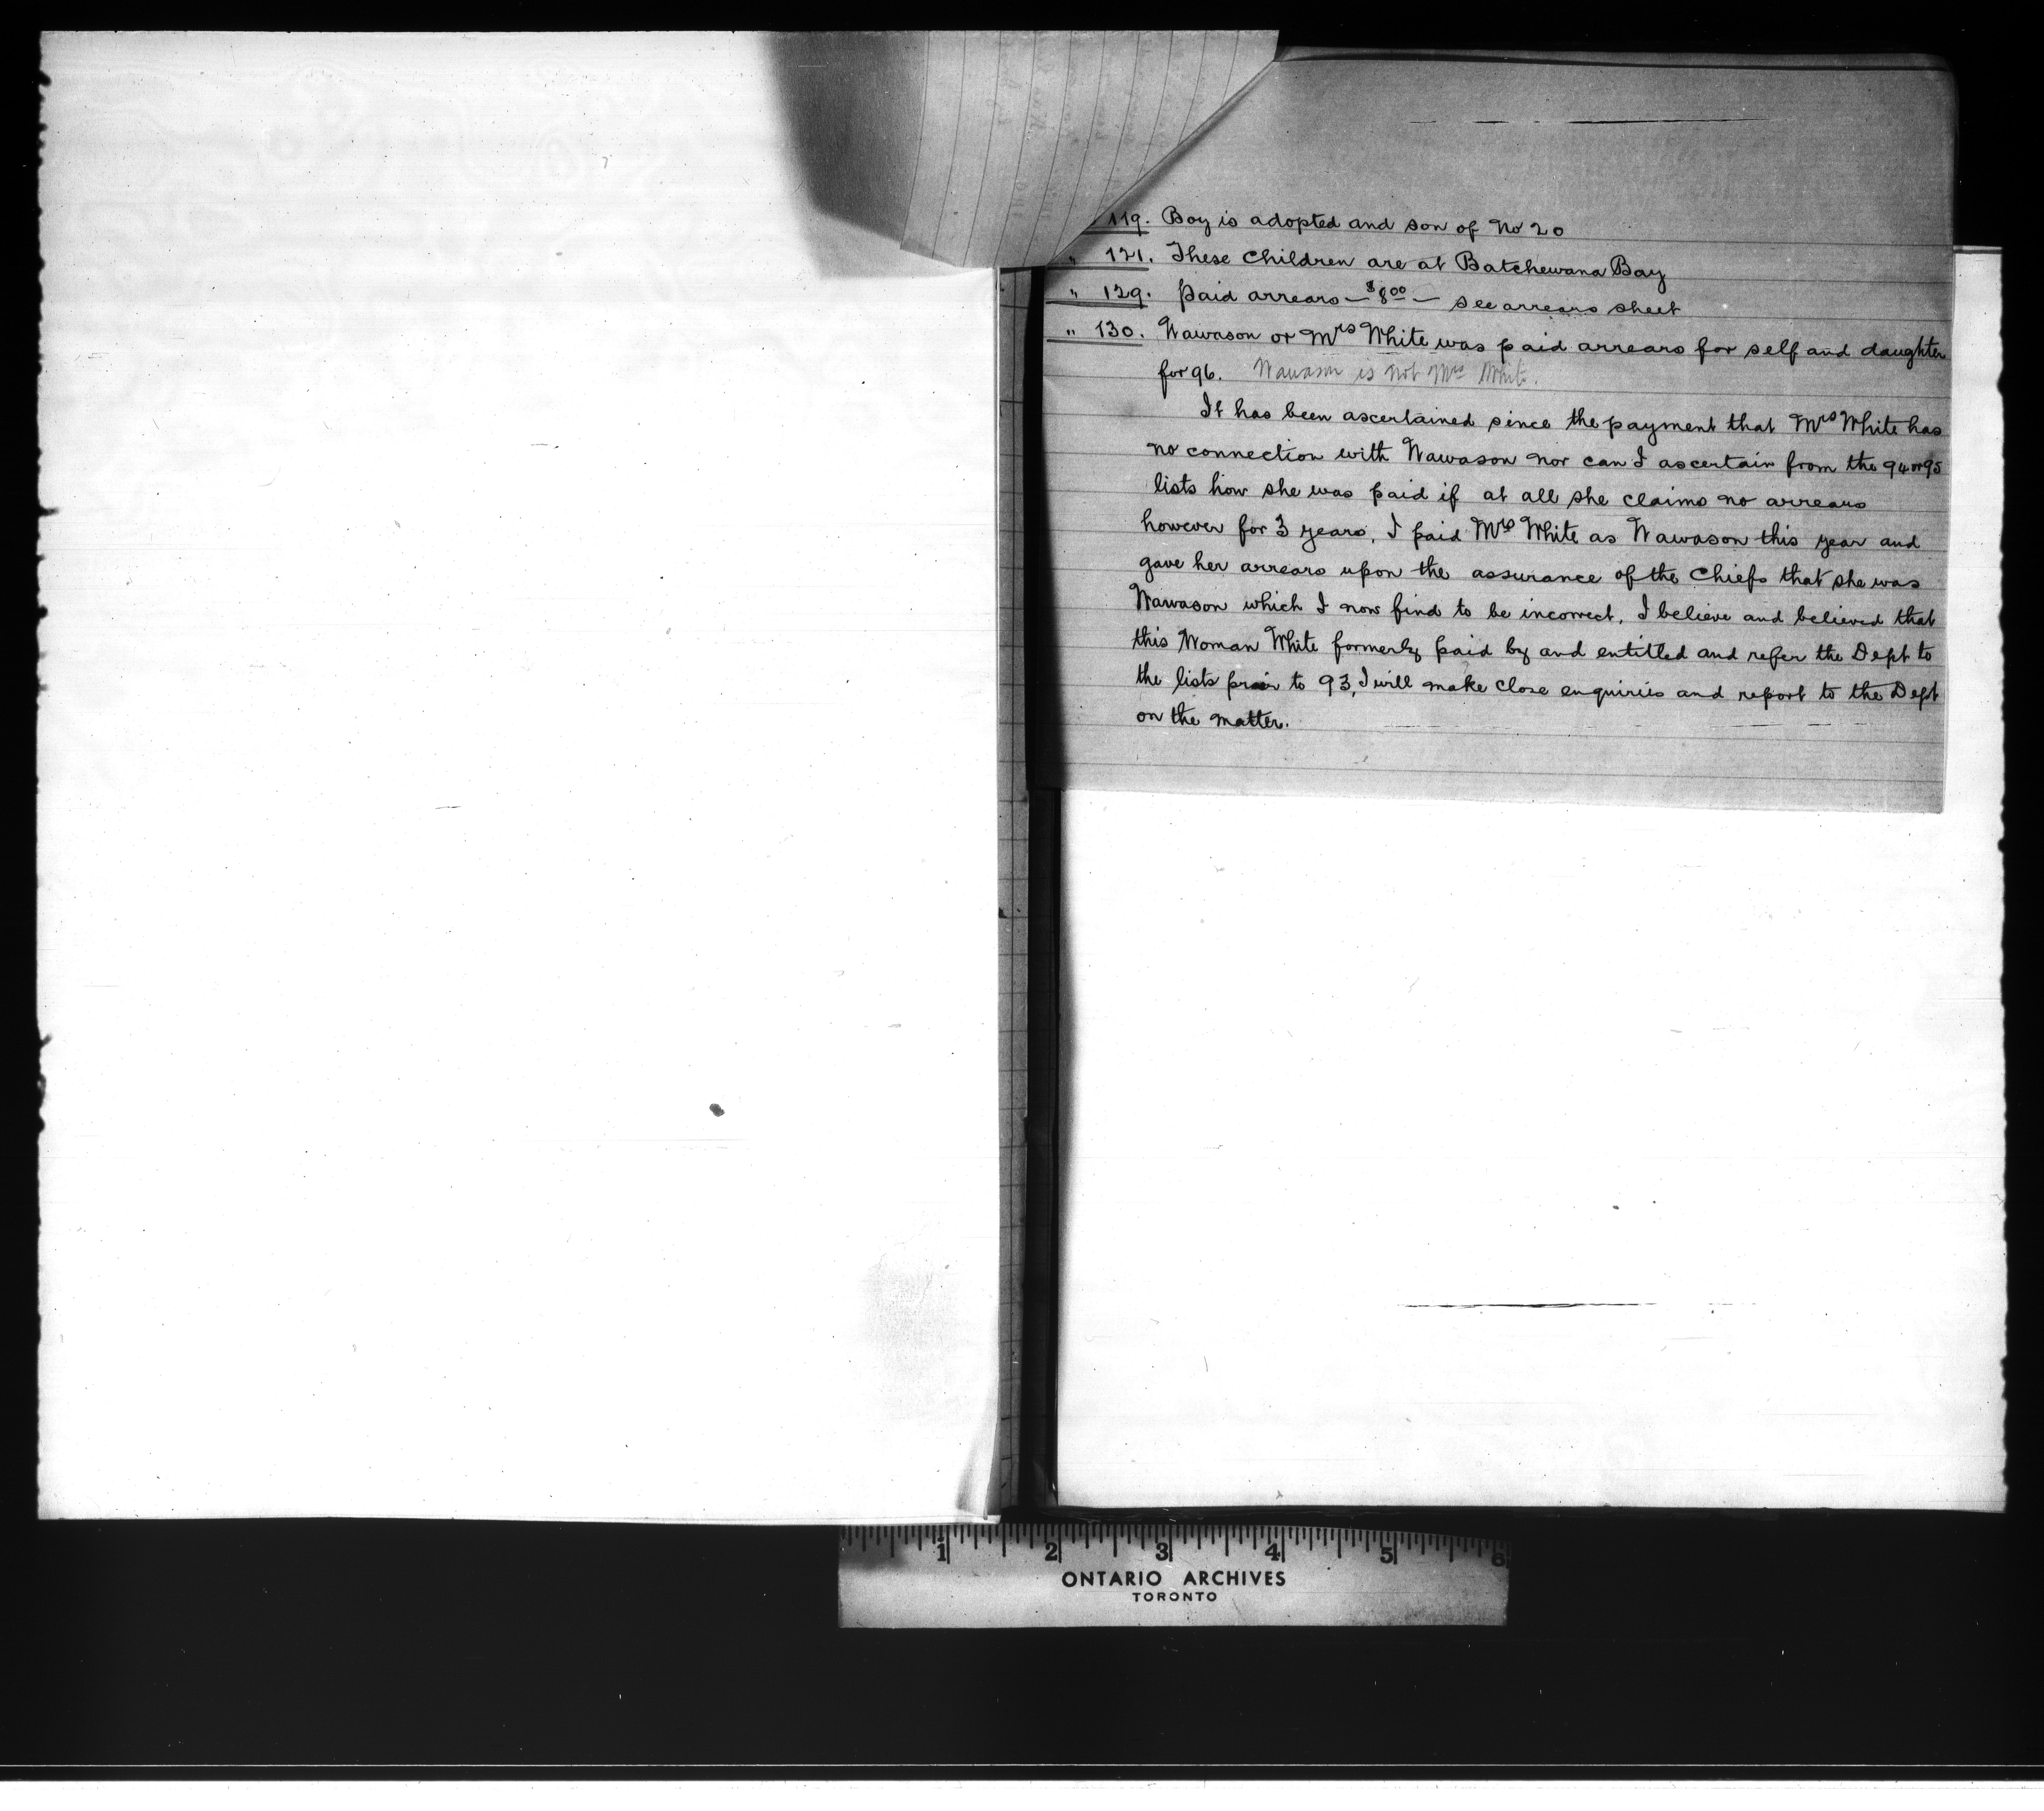 119. Boy is adopted and son of No 20
" 121. These Children are at Batchewana Bay
" 129. Paid arrears — $8.00 — see arrears sheet
" 130. Wawason or Mrs White was paid arrears for self and daughter
for 96. Wawason is not Mrs White.
It has been ascertained since the payment that Mrs White has
no connection with Wawason nor can I ascertain from the 94 or 95
lists how she was paid if at all she claims no arrears
however for 3 years, I paid Mrs White as Wawason this year and
gave her arrears upon the assurance of the Chiefs that she was
Wawason which I now find to be incorrect, I believe and believed that
this Woman White formerly paid by and entitled and refer the Dept to
the lists prior to 93, I will make close enquiries and report to the Dept
on the matter.
1 2 3 4 5 6
ONTARIO ARCHIVES
TORONTO